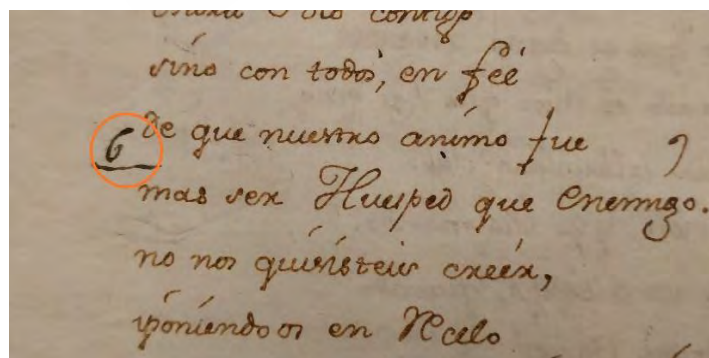 sino con todos, en feé
6 de que nuestro animo fue
mas ser Huesped que Enemigo.
no nos quisisteis creér,
iponiendoos en Recelo